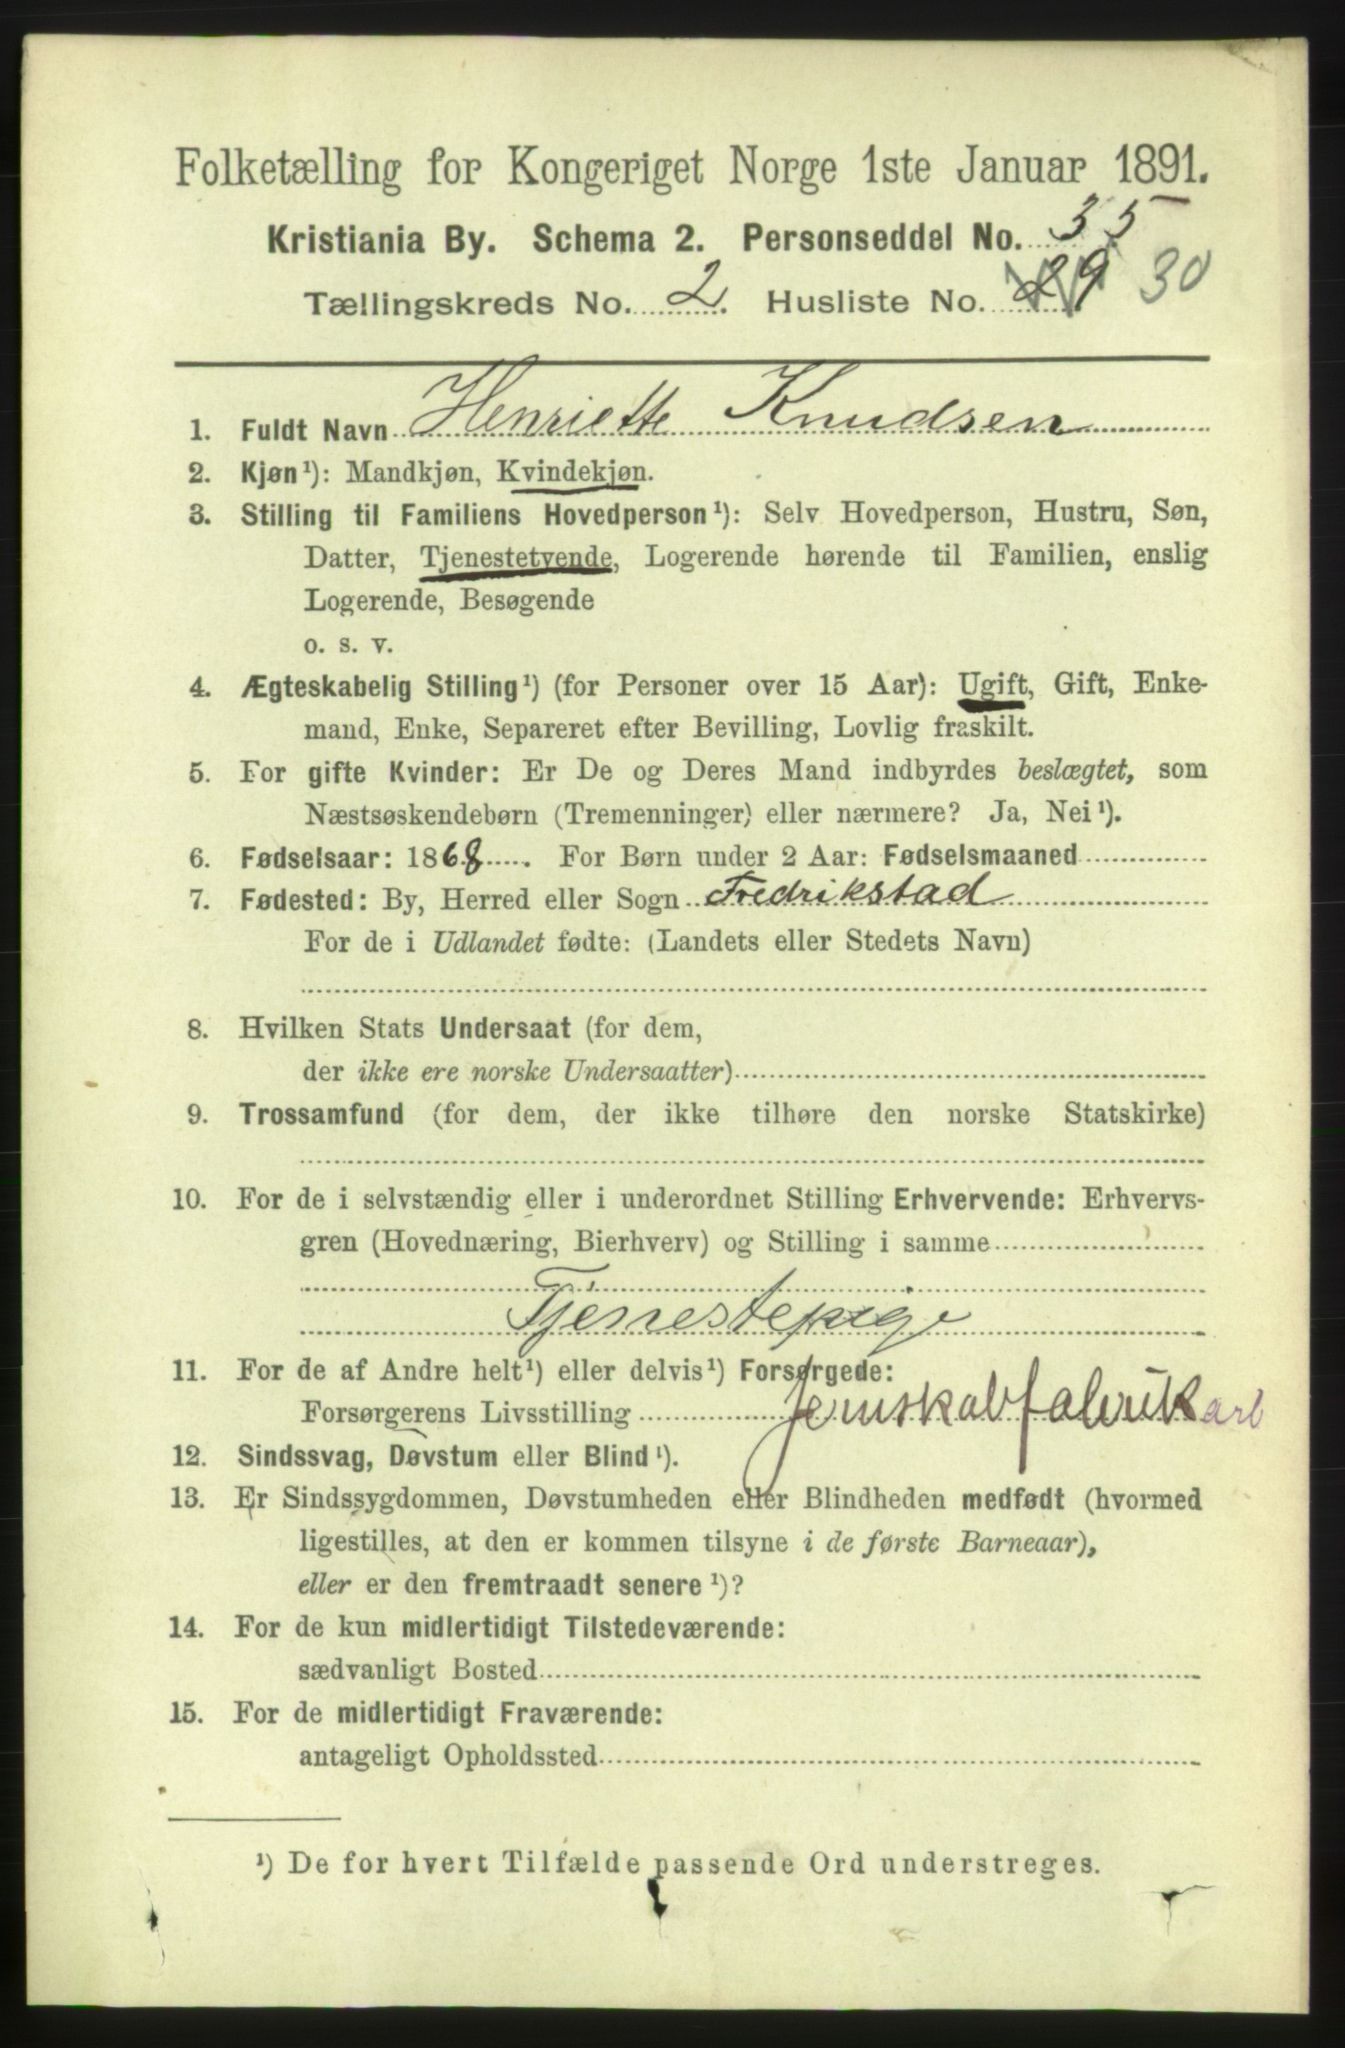 Folketælling for Kongeriget Norge 1ste Januar 1891.
Kristiania By. Schema 2. Personseddel No. 35
Tællingskreds No. 2. Husliste No. 29 30
1. Fuldt Navn Henriette Knudsen
2. Kjøn¹): Mandkjøn, Kvindekjøn.
3. Stilling til Familiens Hovedperson¹): Selv Hovedperson, Hustru, Søn,
Datter, Tjenestetyende, Logerende hørende til Familien, enslig
Logerende, Besøgende
o. s. v.
4. Ægteskabelig Stilling¹) (for Personer over 15 Aar): Ugift, Gift, Enke-
mand, Enke, Separeret efter Bevilling, Lovlig fraskilt.
5. For gifte Kvinder: Er De og Deres Mand indbyrdes beslægtet, som
Næstsøskendebørn (Tremenninger) eller nærmere? Ja, Nei¹).
6. Fødselsaar: 1868. For Børn under 2 Aar: Fødselsmaaned
7. Fødested: By, Herred eller Sogn Fredrikstad
For de i Udlandet fødte: (Landets eller Stedets Navn)
8. Hvilken Stats Undersaat (for dem,
der ikke ere norske Undersaatter)
9. Trossamfund (for dem, der ikke tilhøre den norske Statskirke)
10. For de i selvstændig eller i underordnet Stilling Erhvervende: Erhvervs-
gren (Hovednæring, Bierhverv) og Stilling i samme
Tjenestepige
11. For de af Andre helt¹) eller delvis¹) Forsørgede:
Forsørgerens Livsstilling Jernskabfabrikarb
12. Sindssvag, Døvstum eller Blind¹).
13. Er Sindssygdommen, Døvstumheden eller Blindheden medfødt (hvormed
ligestilles, at den er kommen tilsyne i de første Barneaar),
eller er den fremtraadt senere¹)?
14. For de kun midlertidigt Tilstedeværende:
sædvanligt Bosted
15. For de midlertidigt Fraværende:
antageligt Opholdssted
¹) De for hvert Tilfælde passende Ord understreges.